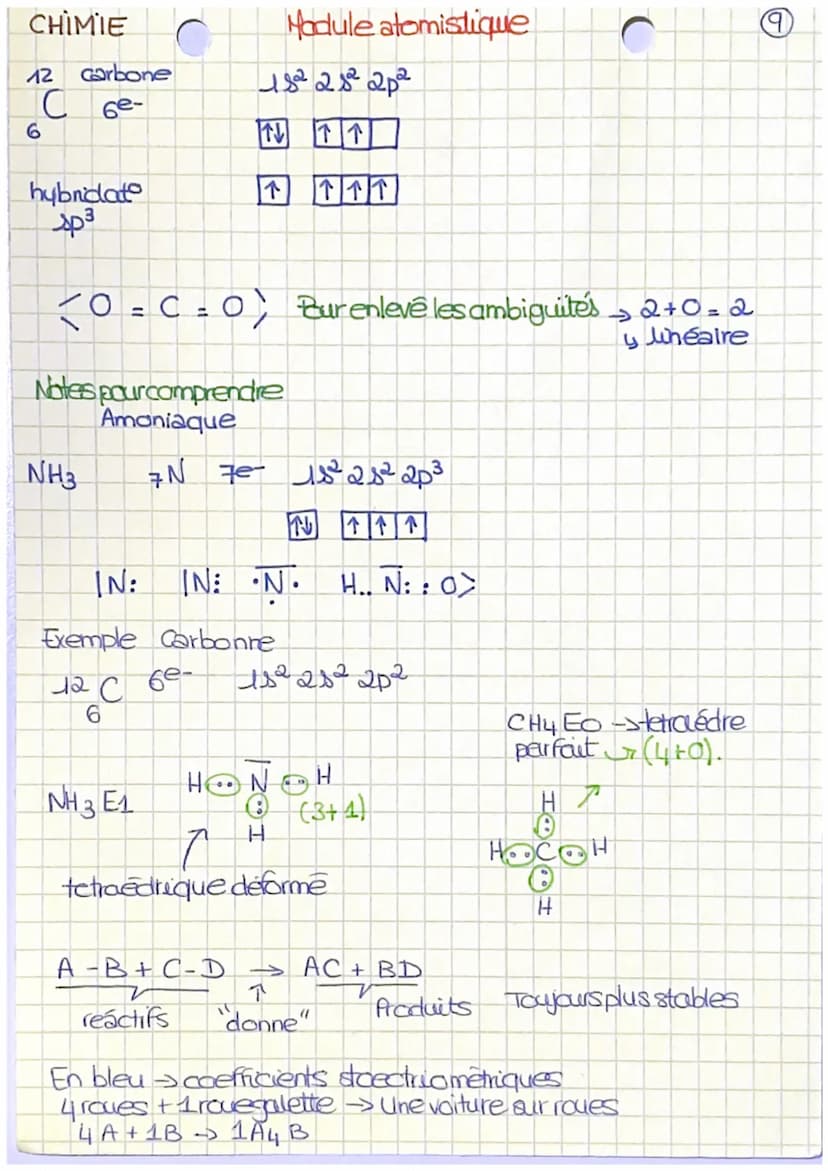 CHIMIE Module atomistique 9
12 carbone 1s² 2s² 2p²
C 6e-
6
↑↓ ↑ ↑
hybridat° ↑ ↑ ↑ ↑
sp³
<O = C = O> Pour enlevé les ambiguités → 2+0 = 2
↳ linéaire
Notes pour comprendre
Amoniaque
NH3 7N 7e- 1s² 2s² 2p³
↑↓ ↑ ↑ ↑
|N: |N⋮ ·N̅· H.. N̅: : O>
Exemple Carbonne
12 C 6e- 1s² 2s² 2p²
6
CH4 E0 → tetraédre
parfait ↪ (4+0).
NH3 E1 H·· N̅ ·· H
: (3+1)
H
tetraédrique déformé
H
:
H··C··H
:
H
A-B + C-D → AC + BD
réactifs "donne" Produits Toujours plus stables
En bleu → coefficients stoectriométriques
4 roues + 1 roue galette → Une voiture sur roues
4A + 1B → 1A4B